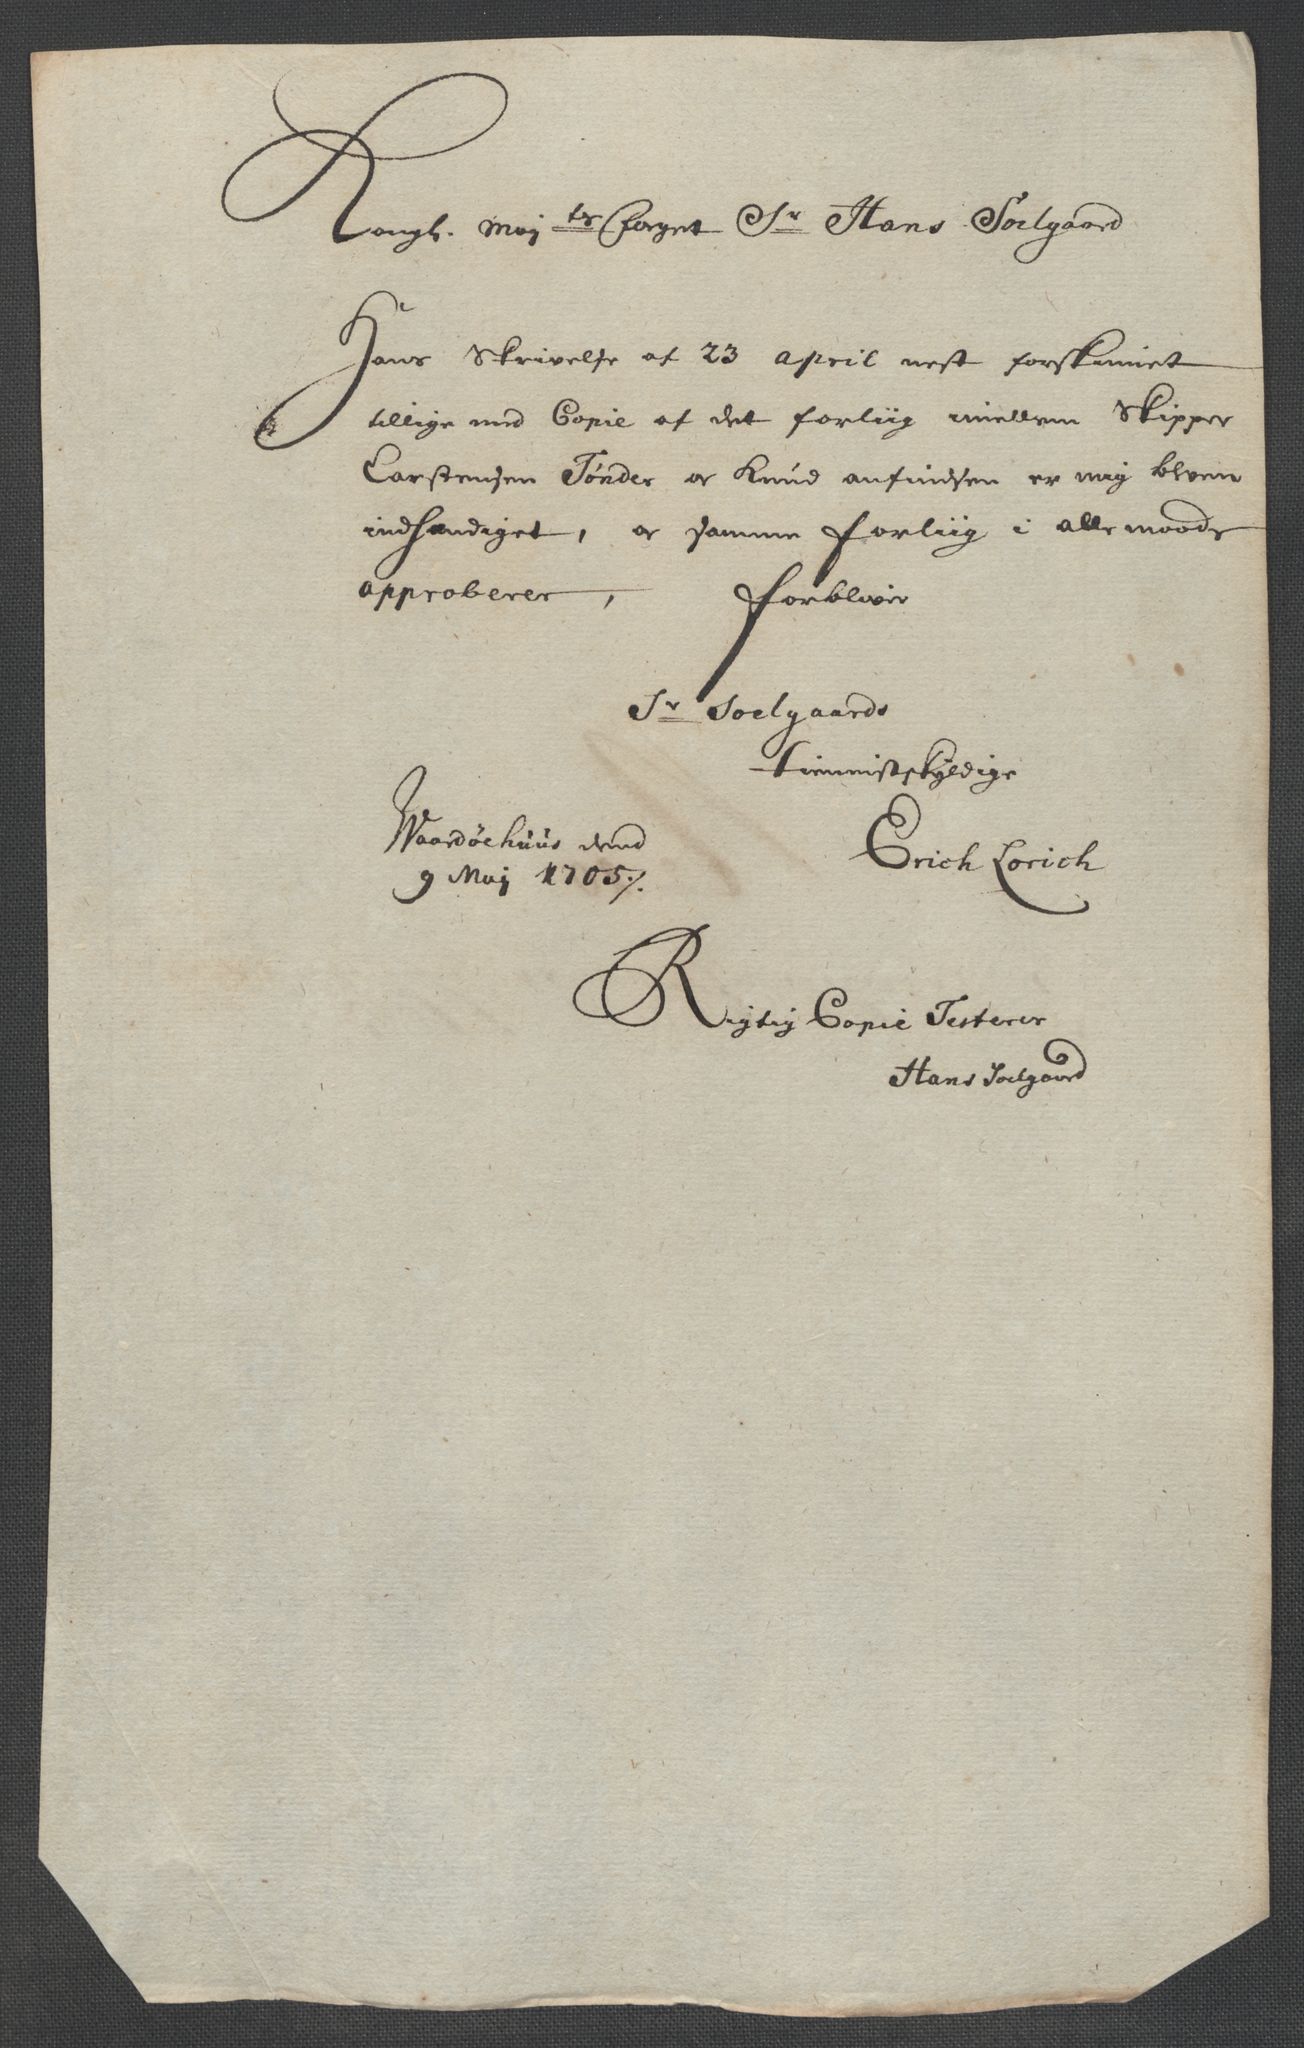 Kongl. Maij:ts foget Sr Hans Soelgaard
Hans Skrivelse af 23 april nest forskinnet
tillige med Copie af det forliig imellem Skipper
Carstensen Tønder og Knud anfindsen er mig bleven
indhændiget, og samme forliig i alle maade
approberer, forblever
Sr Soelgaards
tienistskyldige
Waardøehuus dend
9 Maij 1705 ⁒.
Erich Lorich
Rigtig Copie Testerer
Hans Soelgaard